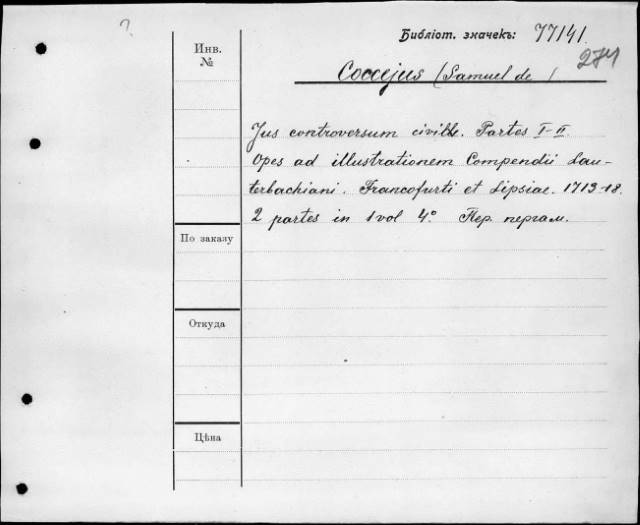 ?
Библіот. значекъ: 77141.
274
Инв.
№
Coccejus (Samuel de)
Jus controversum civille. Partes I-II.
Opes ad illustrationem Compendii Lau-
terbachiani. Francofurti et Lipsiae. 1713-18.
2 partes in 1 vol 4° Пер. пергам.
По заказу
Откуда
Цѣна